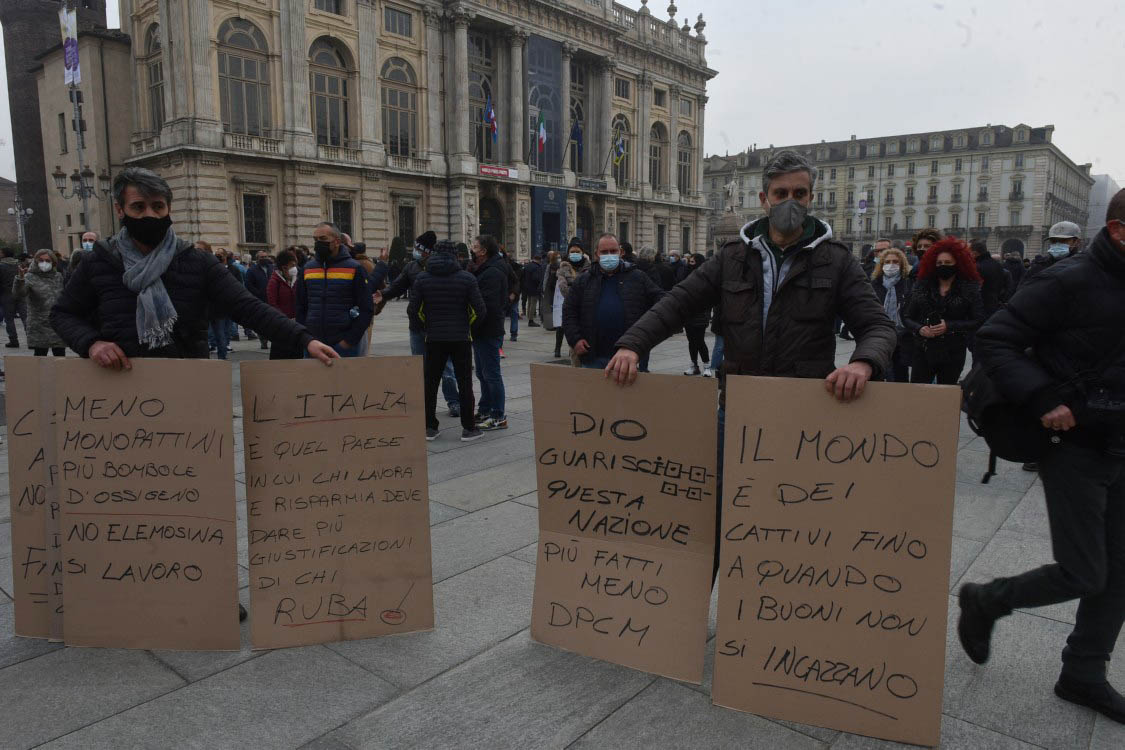 C
A
NO
FIN
MENO
MONOPATTINI
PIÙ BOMBOLE
D'OSSIGENO
NO ELEMOSINA
SI LAVORO
L'ITALIA
È QUEL PAESE
IN CUI CHI LAVORA
E RISPARMIA DEVE
DARE PIÙ
GIUSTIFICAZIONI
DI CHI
RUBA!
DIO
GUARISCI
QUESTA
NAZIONE
PIÙ FATTI
MENO
DPCM
IL MONDO
É DEI
CATTIVI FINO
A QUANDO
I BUONI NON
SI INCAZZANO